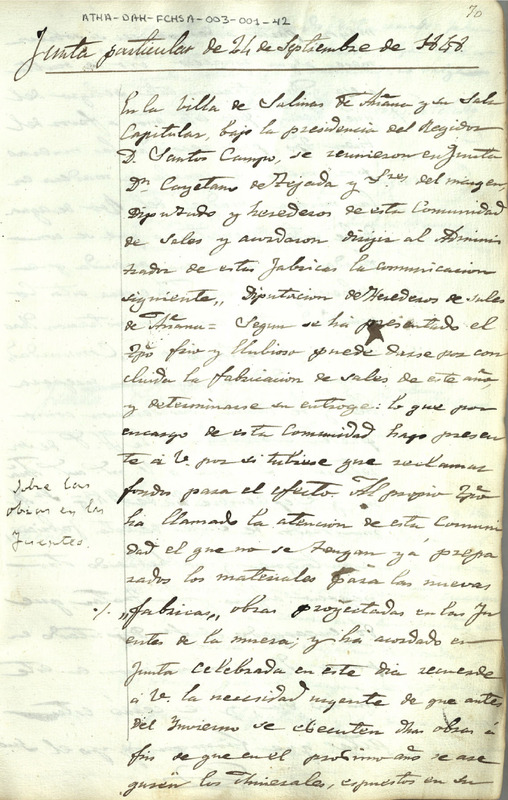 ATHA-DAH-FCHSA-003-001-42
70
Junta particular de 24 de Septiembre de 1848.
En la Villa de Salinas de Añana y su Sala
Capitular, bajo la presidencia del Regidor
D. Santos Campo, se reunieron en Junta
Dn Cayetano de Tejada y Sres del margen,
Diputado y herederos de esta Comunidad
de sales y acordaron dirigir al Adminis
trador de estas fabricas la comunicacion
siguiente,, Diputacion de Herederos de sales
de Añana = Segun se ha presentado el
tpo frio y llubioso puede darse por con
cluida la fabricacion de sales de este año
y determinarse su entroge: lo que por
encargo de esta Comunidad hago presen
te á V. por si tubiese que reclamar
fondos para el efecto. Al propio tpo
ha llamado la atencion de esta Comuni
dad el que no se tengan yá prepa
rados los materiales para las nuevas
Sobre las
obras en las
fuentes.
·/. ,,fabricas,, obras proyectadas en las Fu
entes de la muera; y ha acordado en
Junta celebrada en este dia recuerde
á V. la necesidad urgente de que antes
del Invierno se ejecuten dhas obras á
fin de que en el proximo año se ase
guren los Minerales, espuestos en su